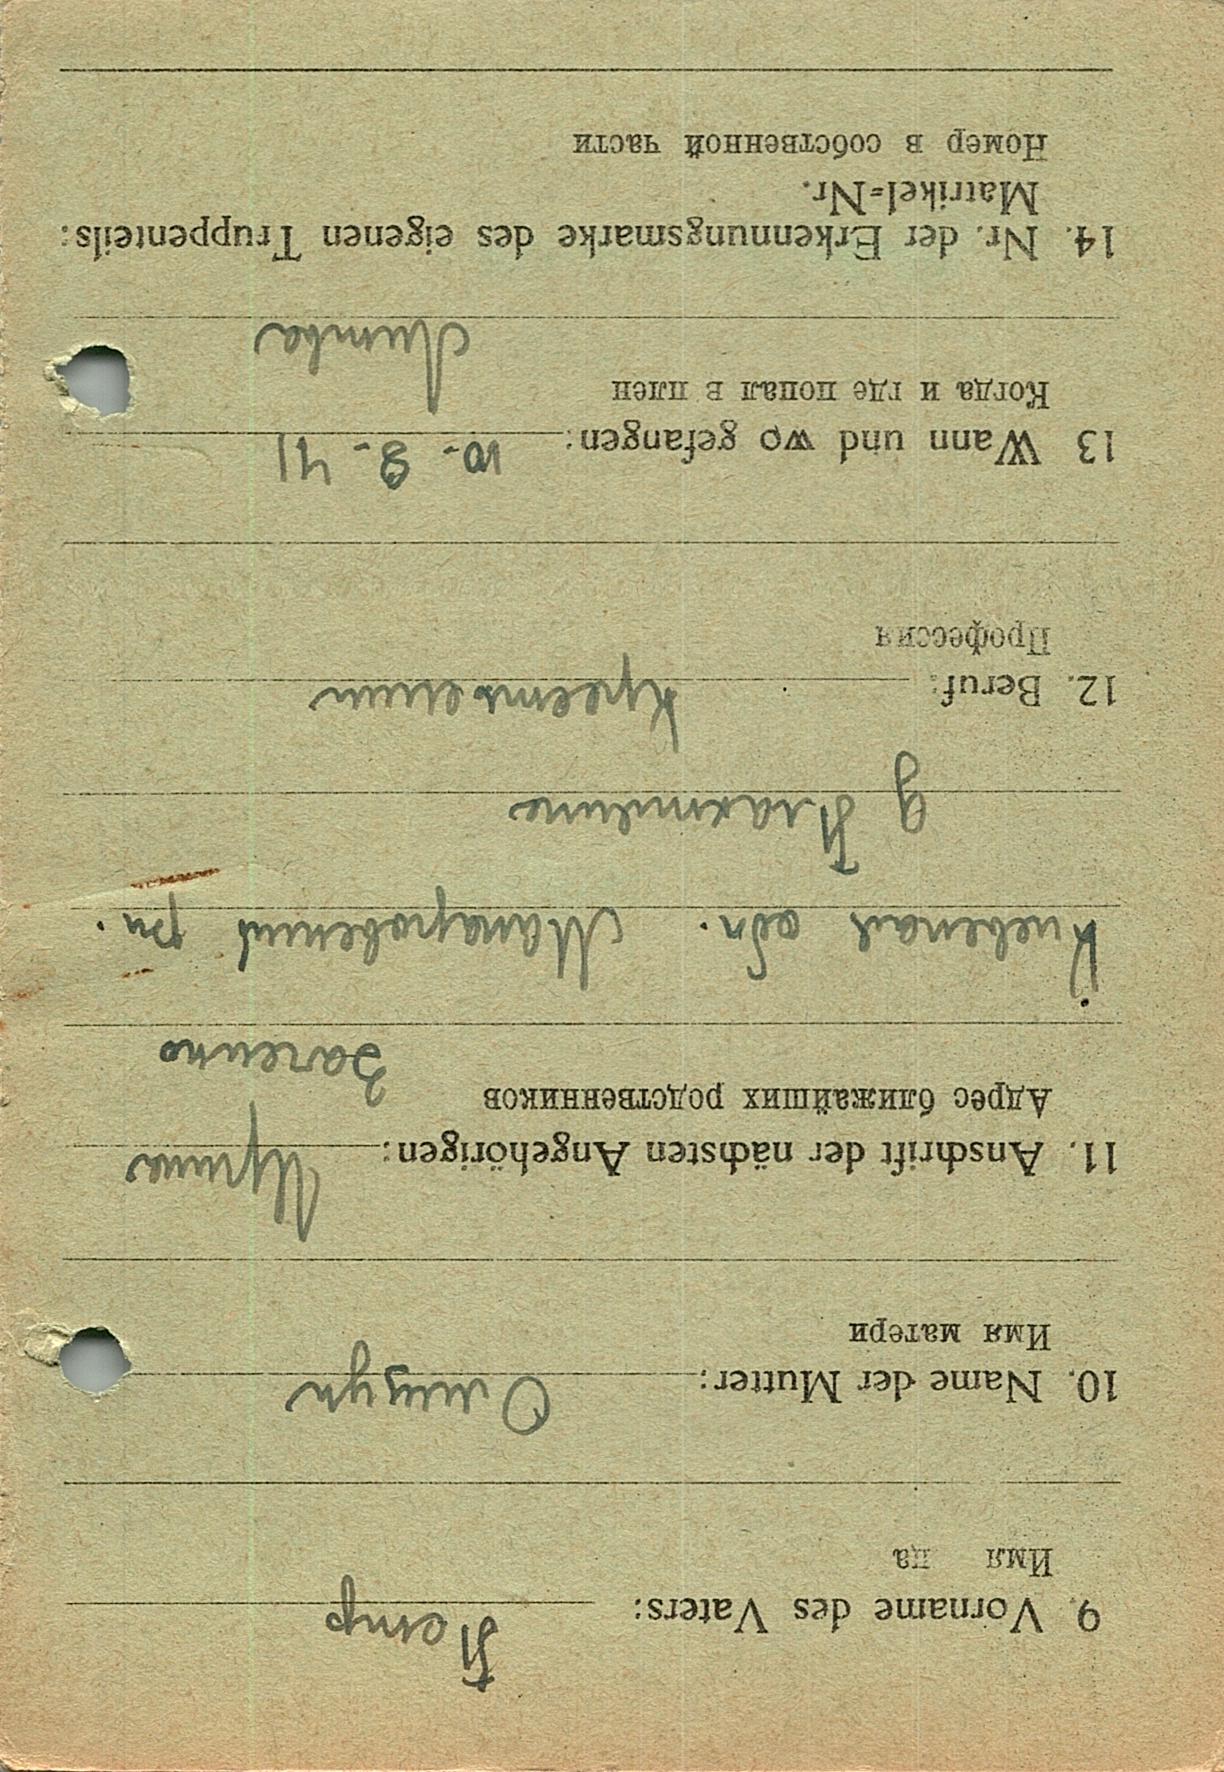 9. Vorname des Vaters: Петр
Имя ца
10. Name der Mutter:
Имя матери
11. Anschrift der nächsten Angehörigen: Ирина
Адрес ближайших родственников
Киевская обл. Макаровский рн.
д
12. Beruf:
Профессия
13 Wann und wo gefangen: 10-8-41
Когда и где попал в плен
Литва
14. Nr. der Erkennungsmarke des eigenen Truppenteils:
Matrikel=Nr.
Номер в собственной части